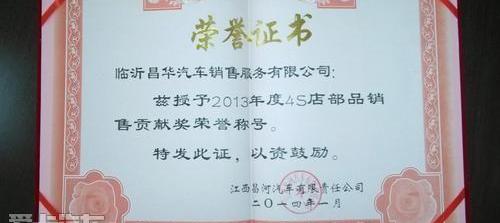 荣誉证书
临沂昌华汽车销售服务有限公司:
兹授予2013年度4S店部品销
售贡献奖荣誉称号。
特发此证,以资鼓励。
江西昌河汽车有限责任公司
二〇一四年一月